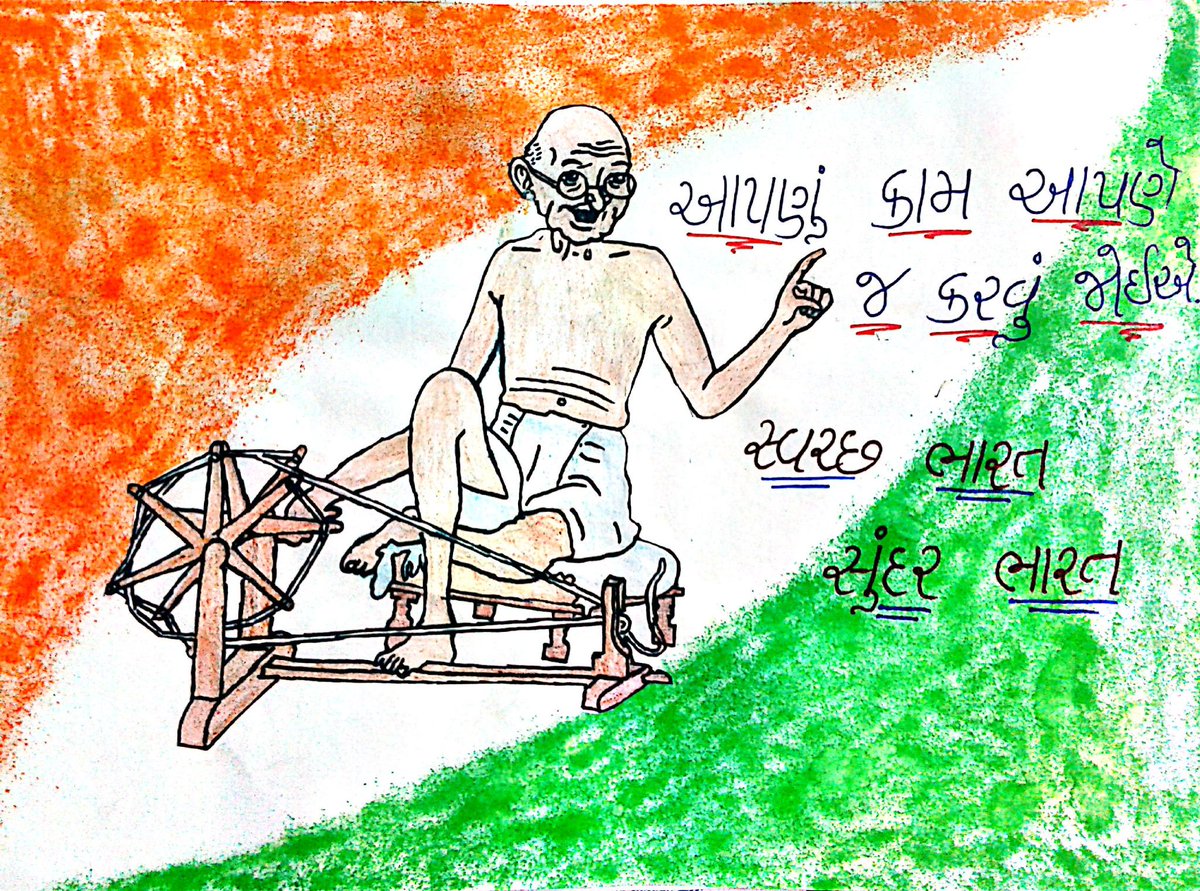 આપણું કામ આપણે
જ કરવું જોઈએ.
સ્વરછ ભારત
સુંદર ભારત